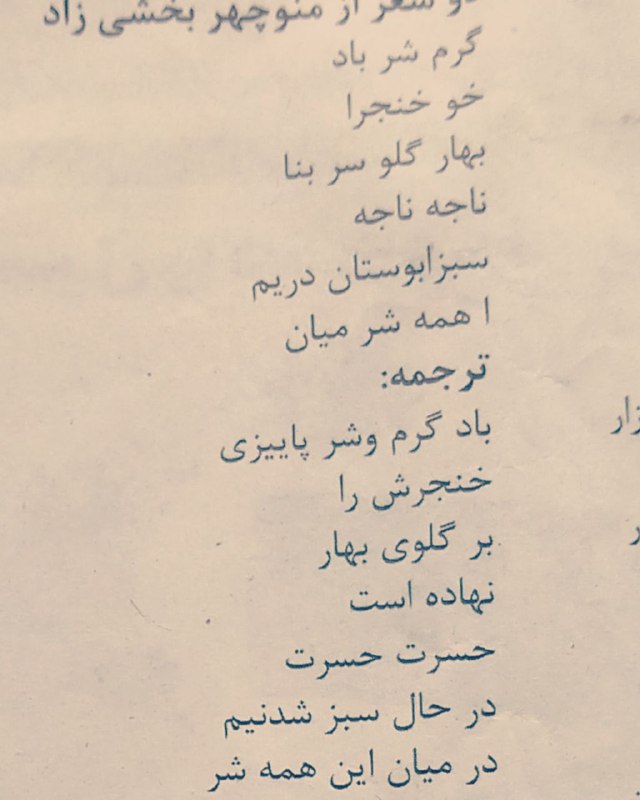 دو شعر از منوچهر بخشی زاد
گرم شر باد
خو خنجرا
بهار گلو سر بنا
ناجه ناجه
سبزابوستان دریم
ا همه شر میان
ترجمه:
باد گرم وشر پاییزی
خنجرش را
بر گلوی بهار
نهاده است
حسرت حسرت
در حال سبز شدنیم
در میان این همه شر